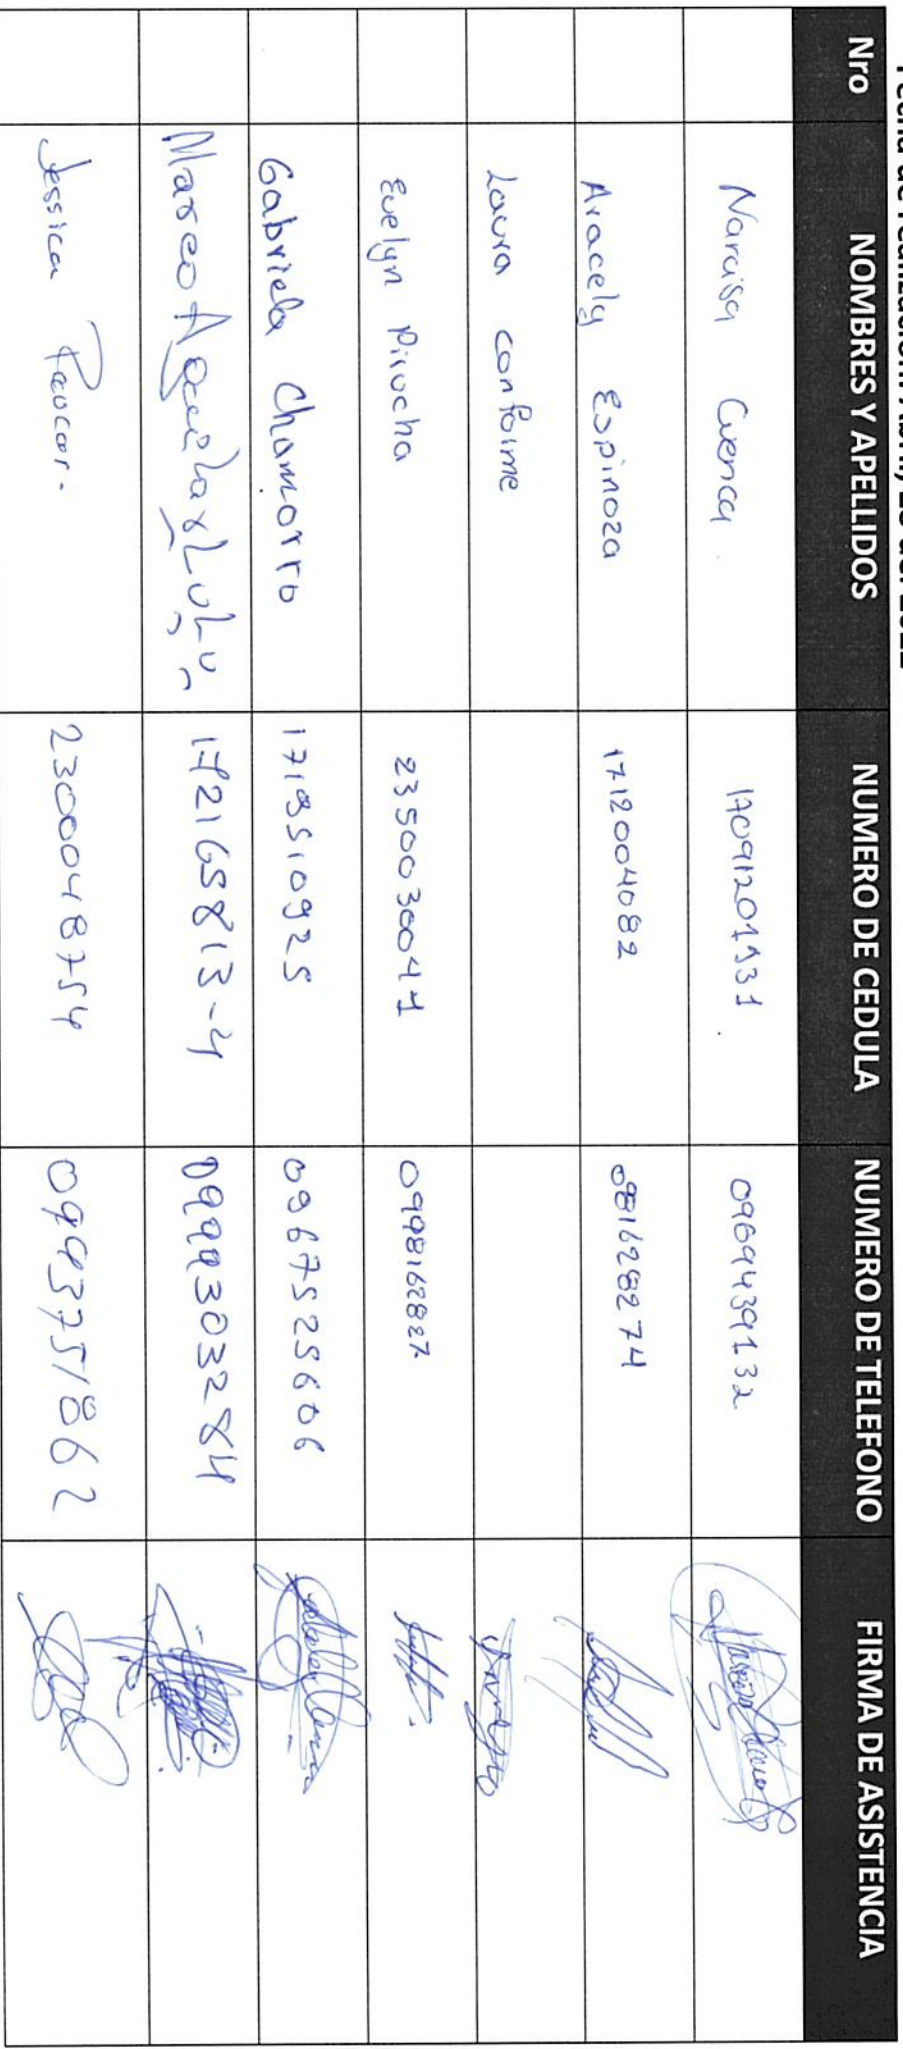 Nro NOMBRES Y APELLIDOS NUMERO DE CEDULA NUMERO DE TELEFONO FIRMA DE ASISTENCIA
Narcisa Cuenca. 0969439132
Aracely Espinoza 1712004082 081628274
Laura Conforme
Evelyn Pirucha 2350030041 0998162827
Gabriela Chamorro 1718510925 0967525606
Marco Aguilar 172165813-4 0999303284
Jessica Paucar. 2300048754 0993751862